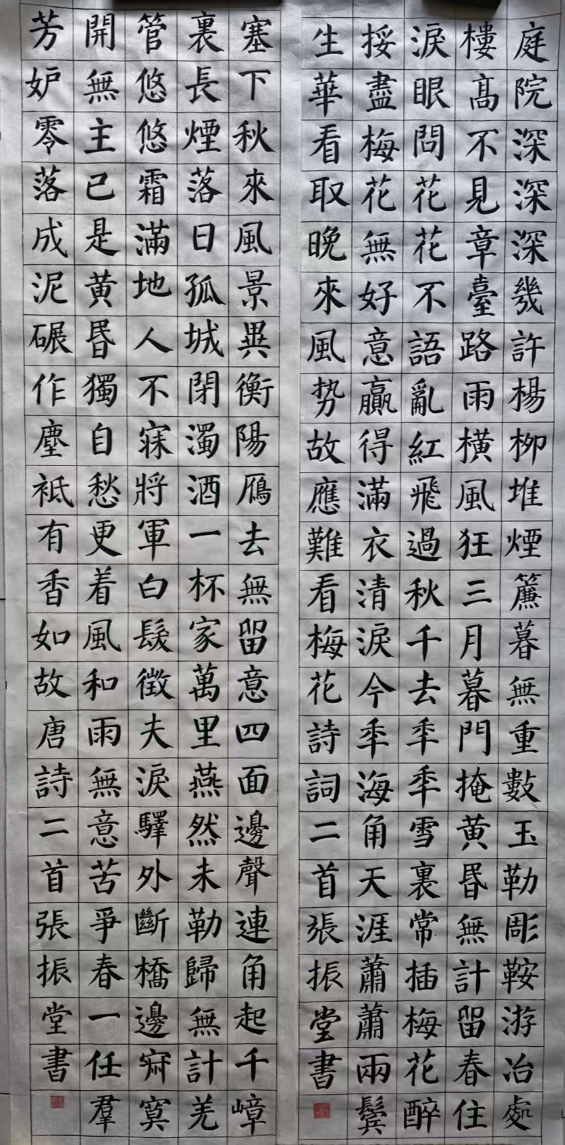 庭院深深深幾許楊柳堆煙簾暮無重數玉勒彫鞍游冶處
樓高不見章臺路雨橫風狂三月暮門掩黄昏無計留春住
淚眼問花花不語亂紅飛過秋千去秊秊雪裏常插梅花醉
挼盡梅花無好意贏得滿衣清淚今秊海角天涯蕭蕭兩鬢
生華看取晚來風势故應難看梅花詩詞二首張振堂書
塞下秋來風景異衡陽鴈去無留意四面邊聲連角起千嶂
裏長煙落日孤城閉濁酒一杯家萬里燕然未勒歸無計羌
管悠悠霜滿地人不寐將軍白髮徵夫淚驛外斷橋邊寂寞
開無主已是黄昏獨自愁更着風和雨無意苦爭春一任羣
芳妒零落成泥碾作塵祗有香如故唐詩二首張振堂書